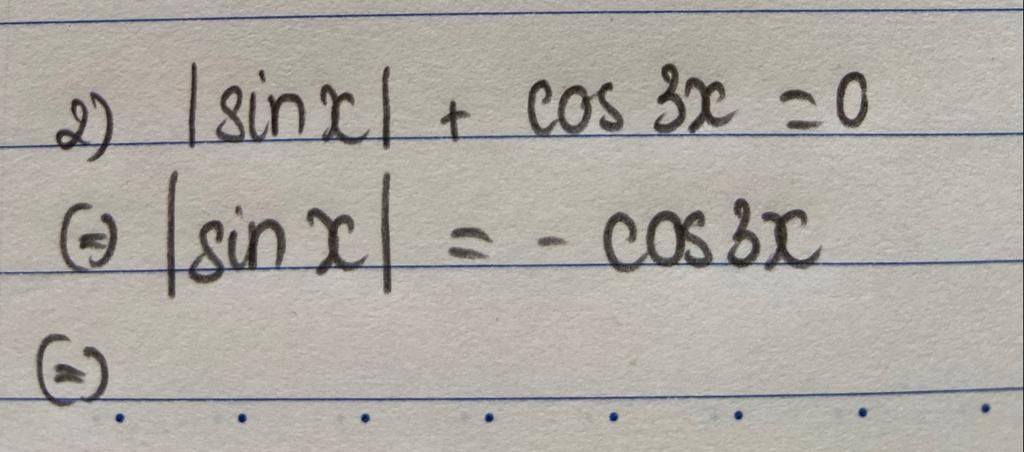 2) |sin x| + cos 3x = 0
(=) |sin x| = - cos 3x
(=)